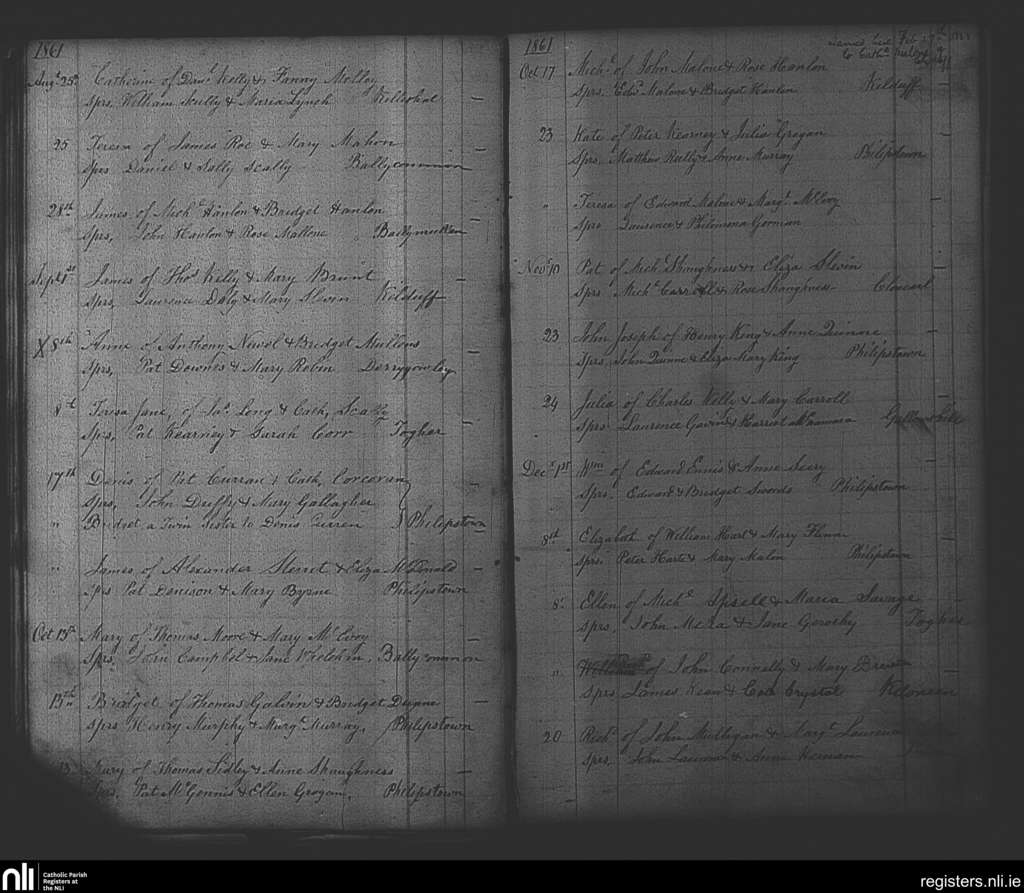 1861
Augt 25th Catherine of Danl Kelly & Fanny Molloy
Sprs. William Scully & Maria Lynch
25 Teresa of James Roe & Mary Mahon
Sprs Daniel & Sally Scally Ballycommon
28th James of Michl Hanlon & Bridget Hanlon
Sprs, John Hanlon & Rose Mallone Ballymullen
Sept 1st James of Thos Kelly & Mary
Sprs, Laurence Daly & Mary Slevin Kilduff
X 8th Anne of Anthony & Bridget Mullens
Sprs, Pat Downes & Mary Robin Derrygowley
8th Teresa Jane, of Jas Long & Cath, Scally
Sprs, Pat Kearney & Sarah Corr Togher
17th Denis of Pat Curran & Cath, Corcoran
Sprs, John Duffy & Mary Gallagher
" Bridget a Twin Sister to Denis Curren Philipstown
" James of Alexander Sterret & Eliza McDonald
Sprs Pat Denison & Mary Byrne Philipstown
Oct 13th Mary of Thomas Moore & Mary McEvoy
Sprs, John Campbel & Jane Ballycommon
13th Bridget of Thomas Galvin & Bridget Dunne
Sprs Henry Murphy & Margt Murray, Philipstown
13 Mary of Thomas Sidley & Anne Shaughness
Sprs, Pat McGennis & Ellen Grogan, Philipstown
1861
James
to Cathe
Oct 17 Michl of John Malone & Rose Hanlon
Sprs, Edwd Malone & Bridget Hanlon Kilduff
23 Kate of Peter Kearney & Julia Grogan
Sprs Matthew Reilly & Anne Murray Philipstown
" Teresa of Edward Malone & Margt McEvoy
Sprs Laurence & Philomena Gorman
Novr 10 Pat of Michl Shaughness & Eliza Slevin
Sprs Michl Carroll & Rose Shaughness Clonearl
23 John Joseph of Henry King & Anne
Sprs, John Quinne & Eliza Mary King Philipstown
24 Julia of Charles Kelly & Mary Carroll
Sprs Laurence Gavin & Harriet McNamara
Decr 1st Wm of Edward Ennis & Anne Seery
Sprs, Edward & Bridget Swords Philipstown
8th Elizabeth of William Hart & Mary Flinn
Sprs, Peter Harte & Mary Malon Philipstown
8 Ellen of Michl Spsell & Maria Savage
Sprs, John & Jane Togher
" of John Connelly & Mary
Sprs James Kean & Cath Crystal Kiloneen
20 Richd of John Mulligan & Margt
Sprs, John & Anne
nli
Catholic Parish
Registers at
the NLI
registers.nli.ie